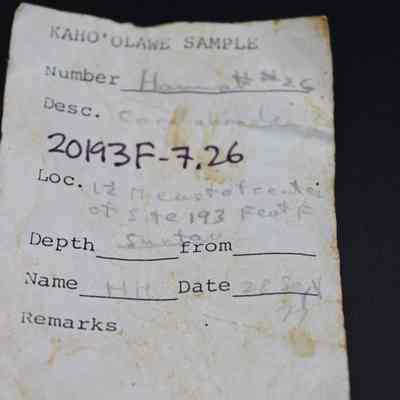 KAHO'OLAWE SAMPLE
Number 26
Desc.
20193F-7.26
Loc. 12 M east of center
of Site 193 Feat F
Depth from
Name HH Date 28 Sep
Remarks